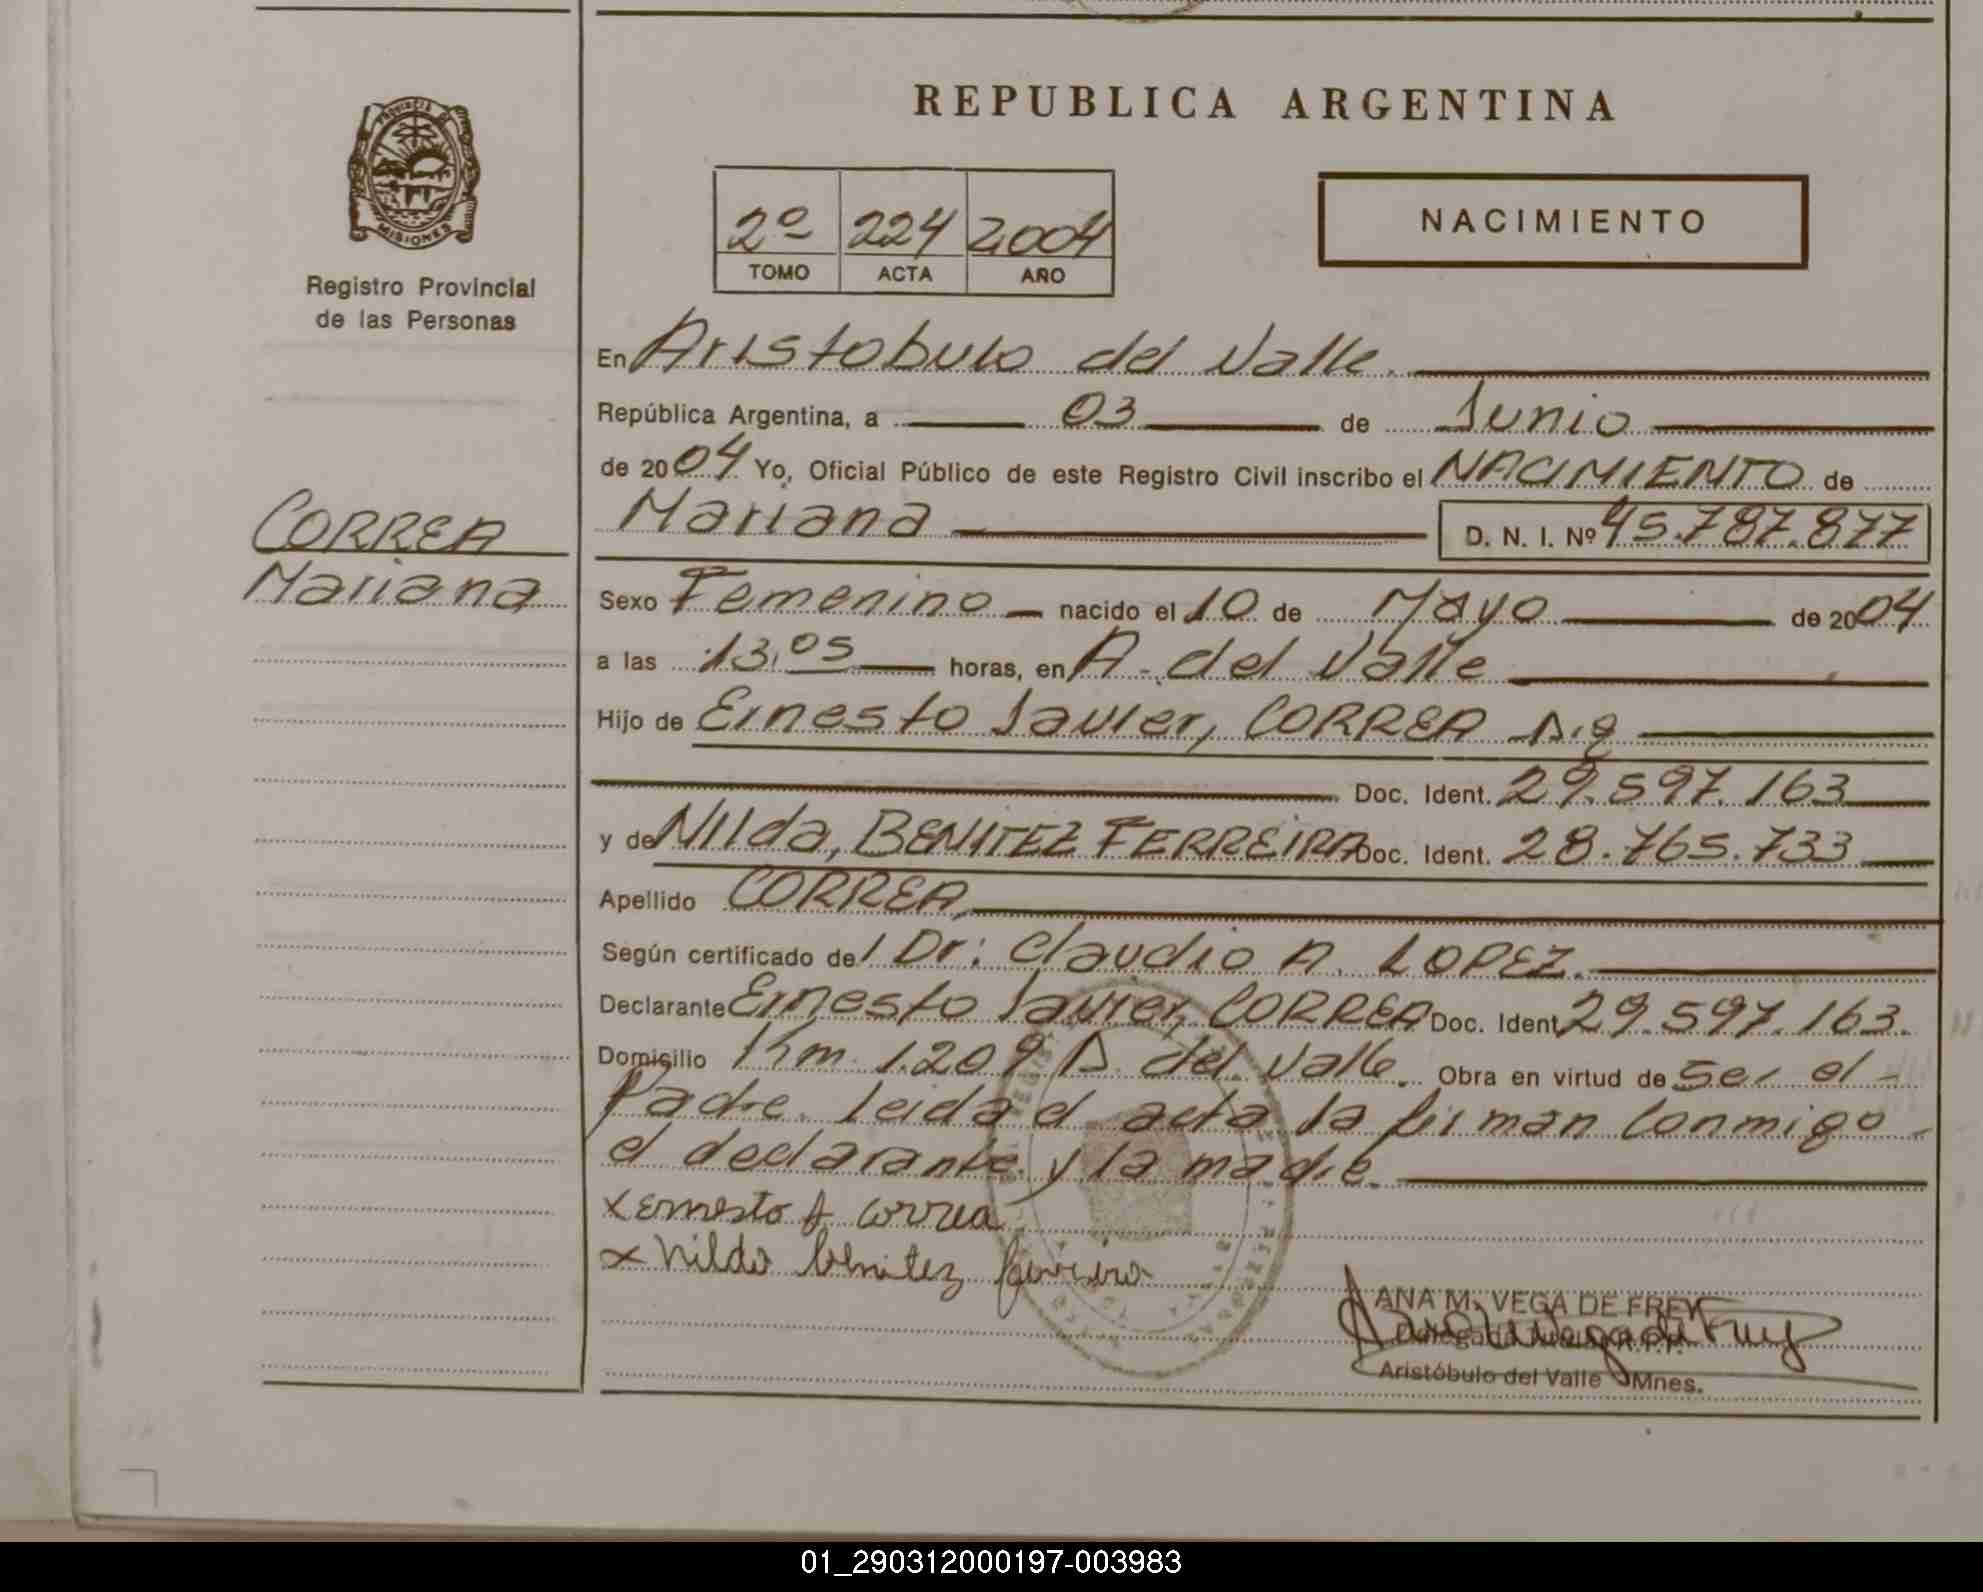 REPUBLICA ARGENTINA
PROVINCIA DE
MISIONES
Registro Provincial
de las Personas
2º 224 2004
TOMO ACTA AÑO
NACIMIENTO
En Aristobulo del Valle.
República Argentina, a 03 de Junio
de 2004 Yo, Oficial Público de este Registro Civil inscribo el NACIMIENTO de
Mariana D. N. I. Nº 45.787.877
CORREA
Mariana
Sexo Femenino nacido el 10 de Mayo de 2004
a las 13,05 horas, en A. del Valle
Hijo de Ernesto Javier, CORREA
Doc. Ident. 29.597.163
y de Nilda, BENITEZ FERREIRA Doc. Ident. 28.765.733
Apellido CORREA,
Según certificado del Dr: Claudio A. LOPEZ.
Declarante Ernesto Javier, CORREA Doc. Ident 29.597.163.
Domicilio Km. 1.209 A. del Valle. Obra en virtud de ser el -
Padre. Leida el acta la firman conmigo -
el declarante y la madre.
x ernesto J. correa
x nilda benitez ferreira
ANA M. VEGA DE FREY
Aristóbulo del Valle - Mnes.
01_290312000197-003983